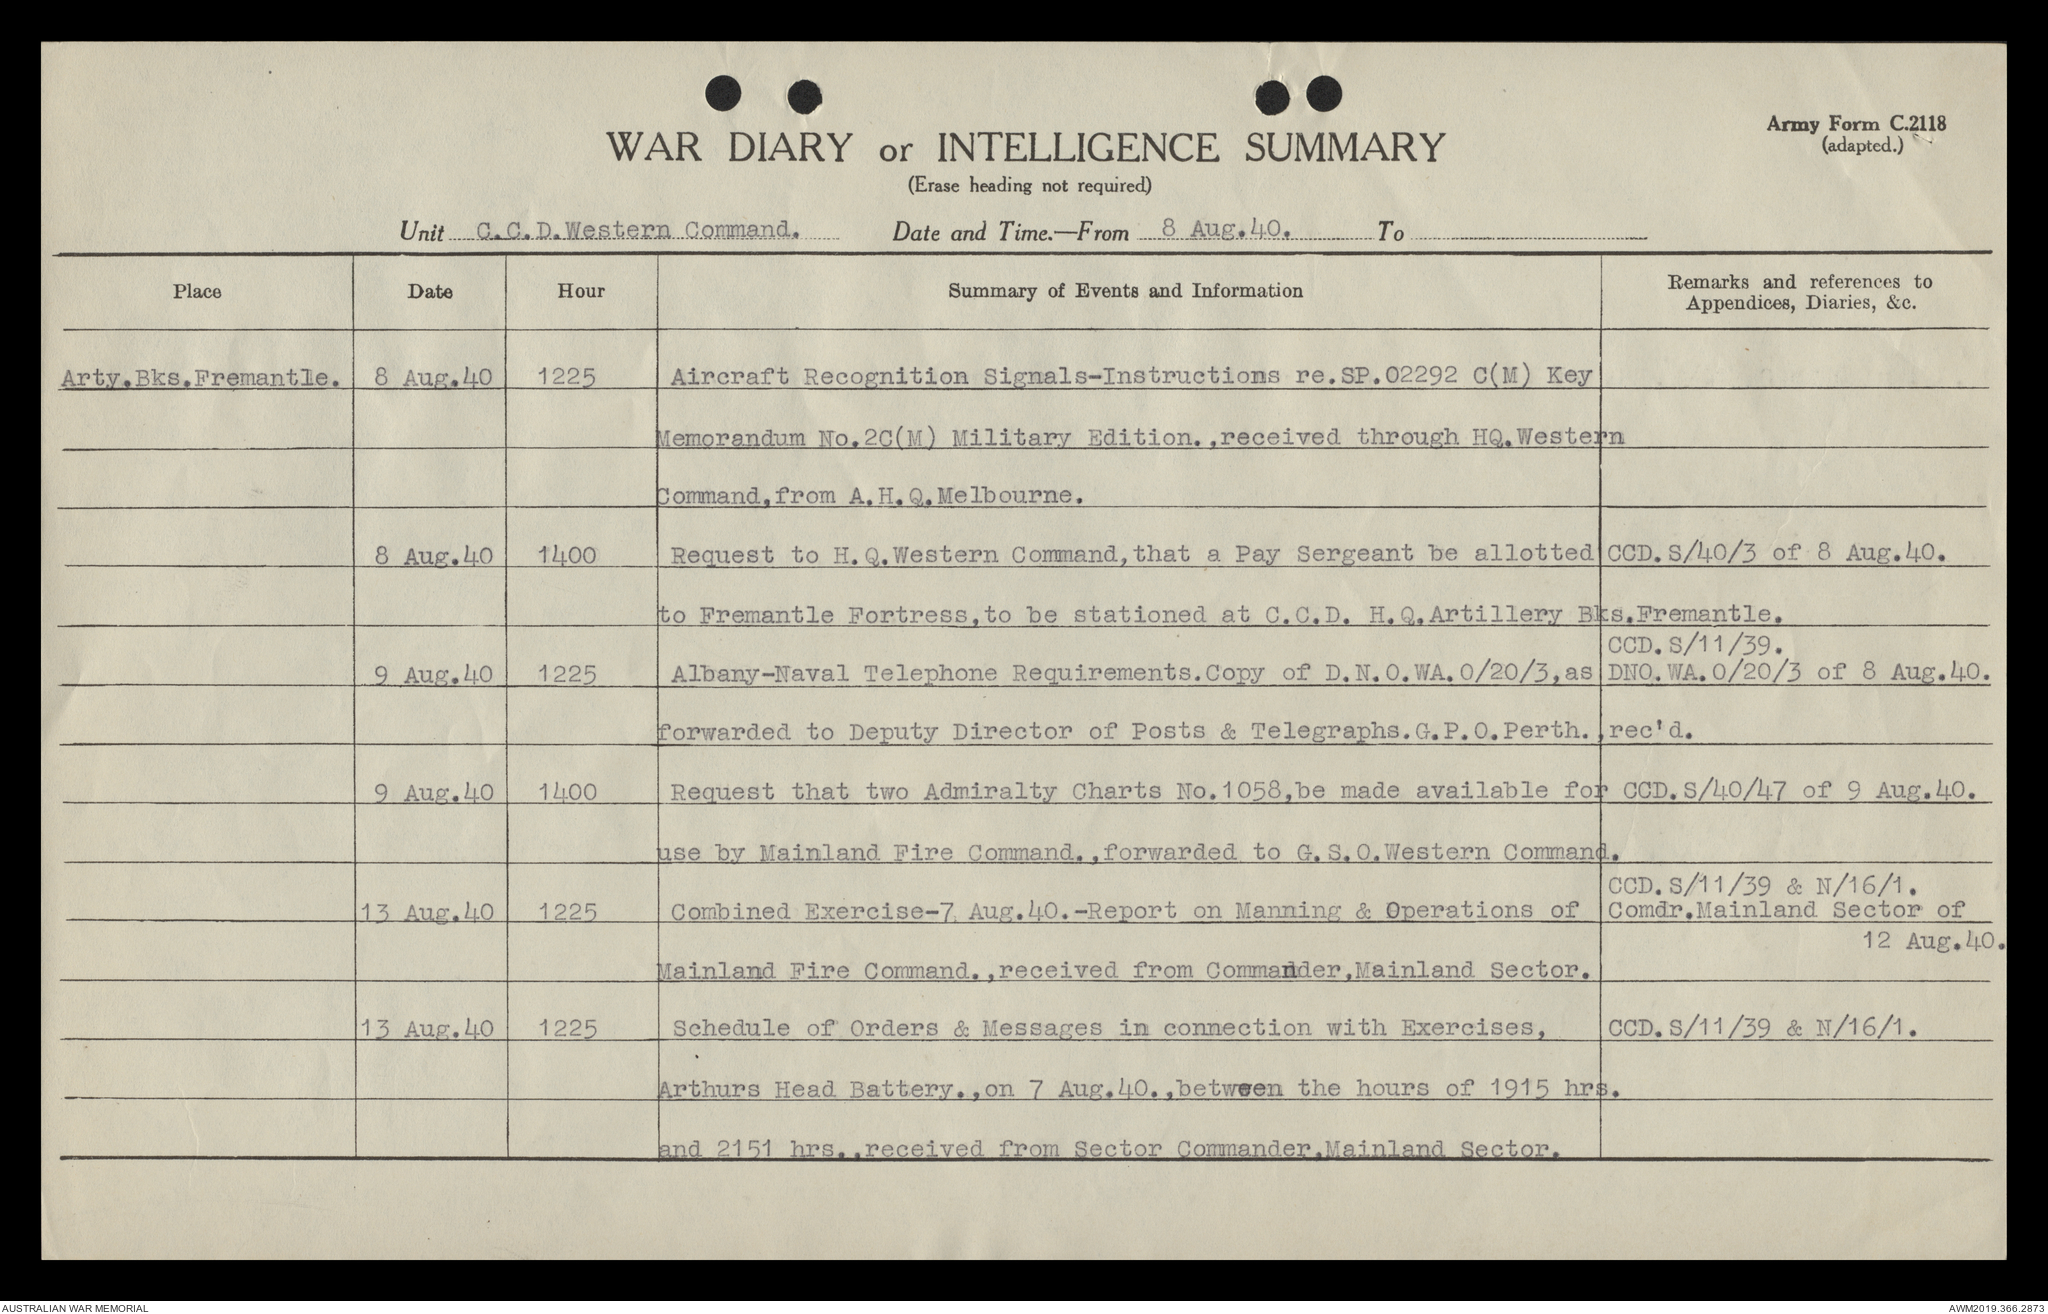 WAR DIARY or INTELLIGENCE SUMMARY
Army Form C.2118
(adapted.)
(Erase heading not required)
Unit C.C.D.Western Command. Date and Time.—From 8 Aug.40. To
Place Date Hour Summary of Events and Information Remarks and references to
Appendices, Diaries, &c.
Arty.Bks.Fremantle. 8 Aug.40 1225 Aircraft Recognition Signals-Instructions re.SP.02292 C(M) Key
Memorandum No.2C(M) Military Edition.,received through HQ.Western
Command,from A.H.Q.Melbourne.
8 Aug.40 1400 Request to H.Q.Western Command,that a Pay Sergeant be allotted CCD.S/40/3 of 8 Aug.40.
to Fremantle Fortress,to be stationed at C.C.D. H.Q.Artillery Bks.Fremantle.
CCD.S/11/39.
9 Aug.40 1225 Albany-Naval Telephone Requirements.Copy of D.N.O.WA.0/20/3,as DNO.WA.0/20/3 of 8 Aug.40.
forwarded to Deputy Director of Posts & Telegraphs.G.P.O.Perth.,rec'd.
9 Aug.40 1400 Request that two Admiralty Charts No.1058,be made available for CCD.S/40/47 of 9 Aug.40.
use by Mainland Fire Command.,forwarded to G.S.O.Western Command.
CCD.S/11/39 & N/16/1.
13 Aug.40 1225 Combined Exercise-7 Aug.40.-Report on Manning & Operations of Comdr.Mainland Sector of
12 Aug.40.
Mainland Fire Command.,received from Commander,Mainland Sector.
13 Aug.40 1225 Schedule of Orders & Messages in connection with Exercises, CCD.S/11/39 & N/16/1.
Arthurs Head Battery.,on 7 Aug.40.,between the hours of 1915 hrs.
and 2151 hrs.,received from Sector Commander,Mainland Sector.
AUSTRALIAN WAR MEMORIAL AWM2019.366.2873